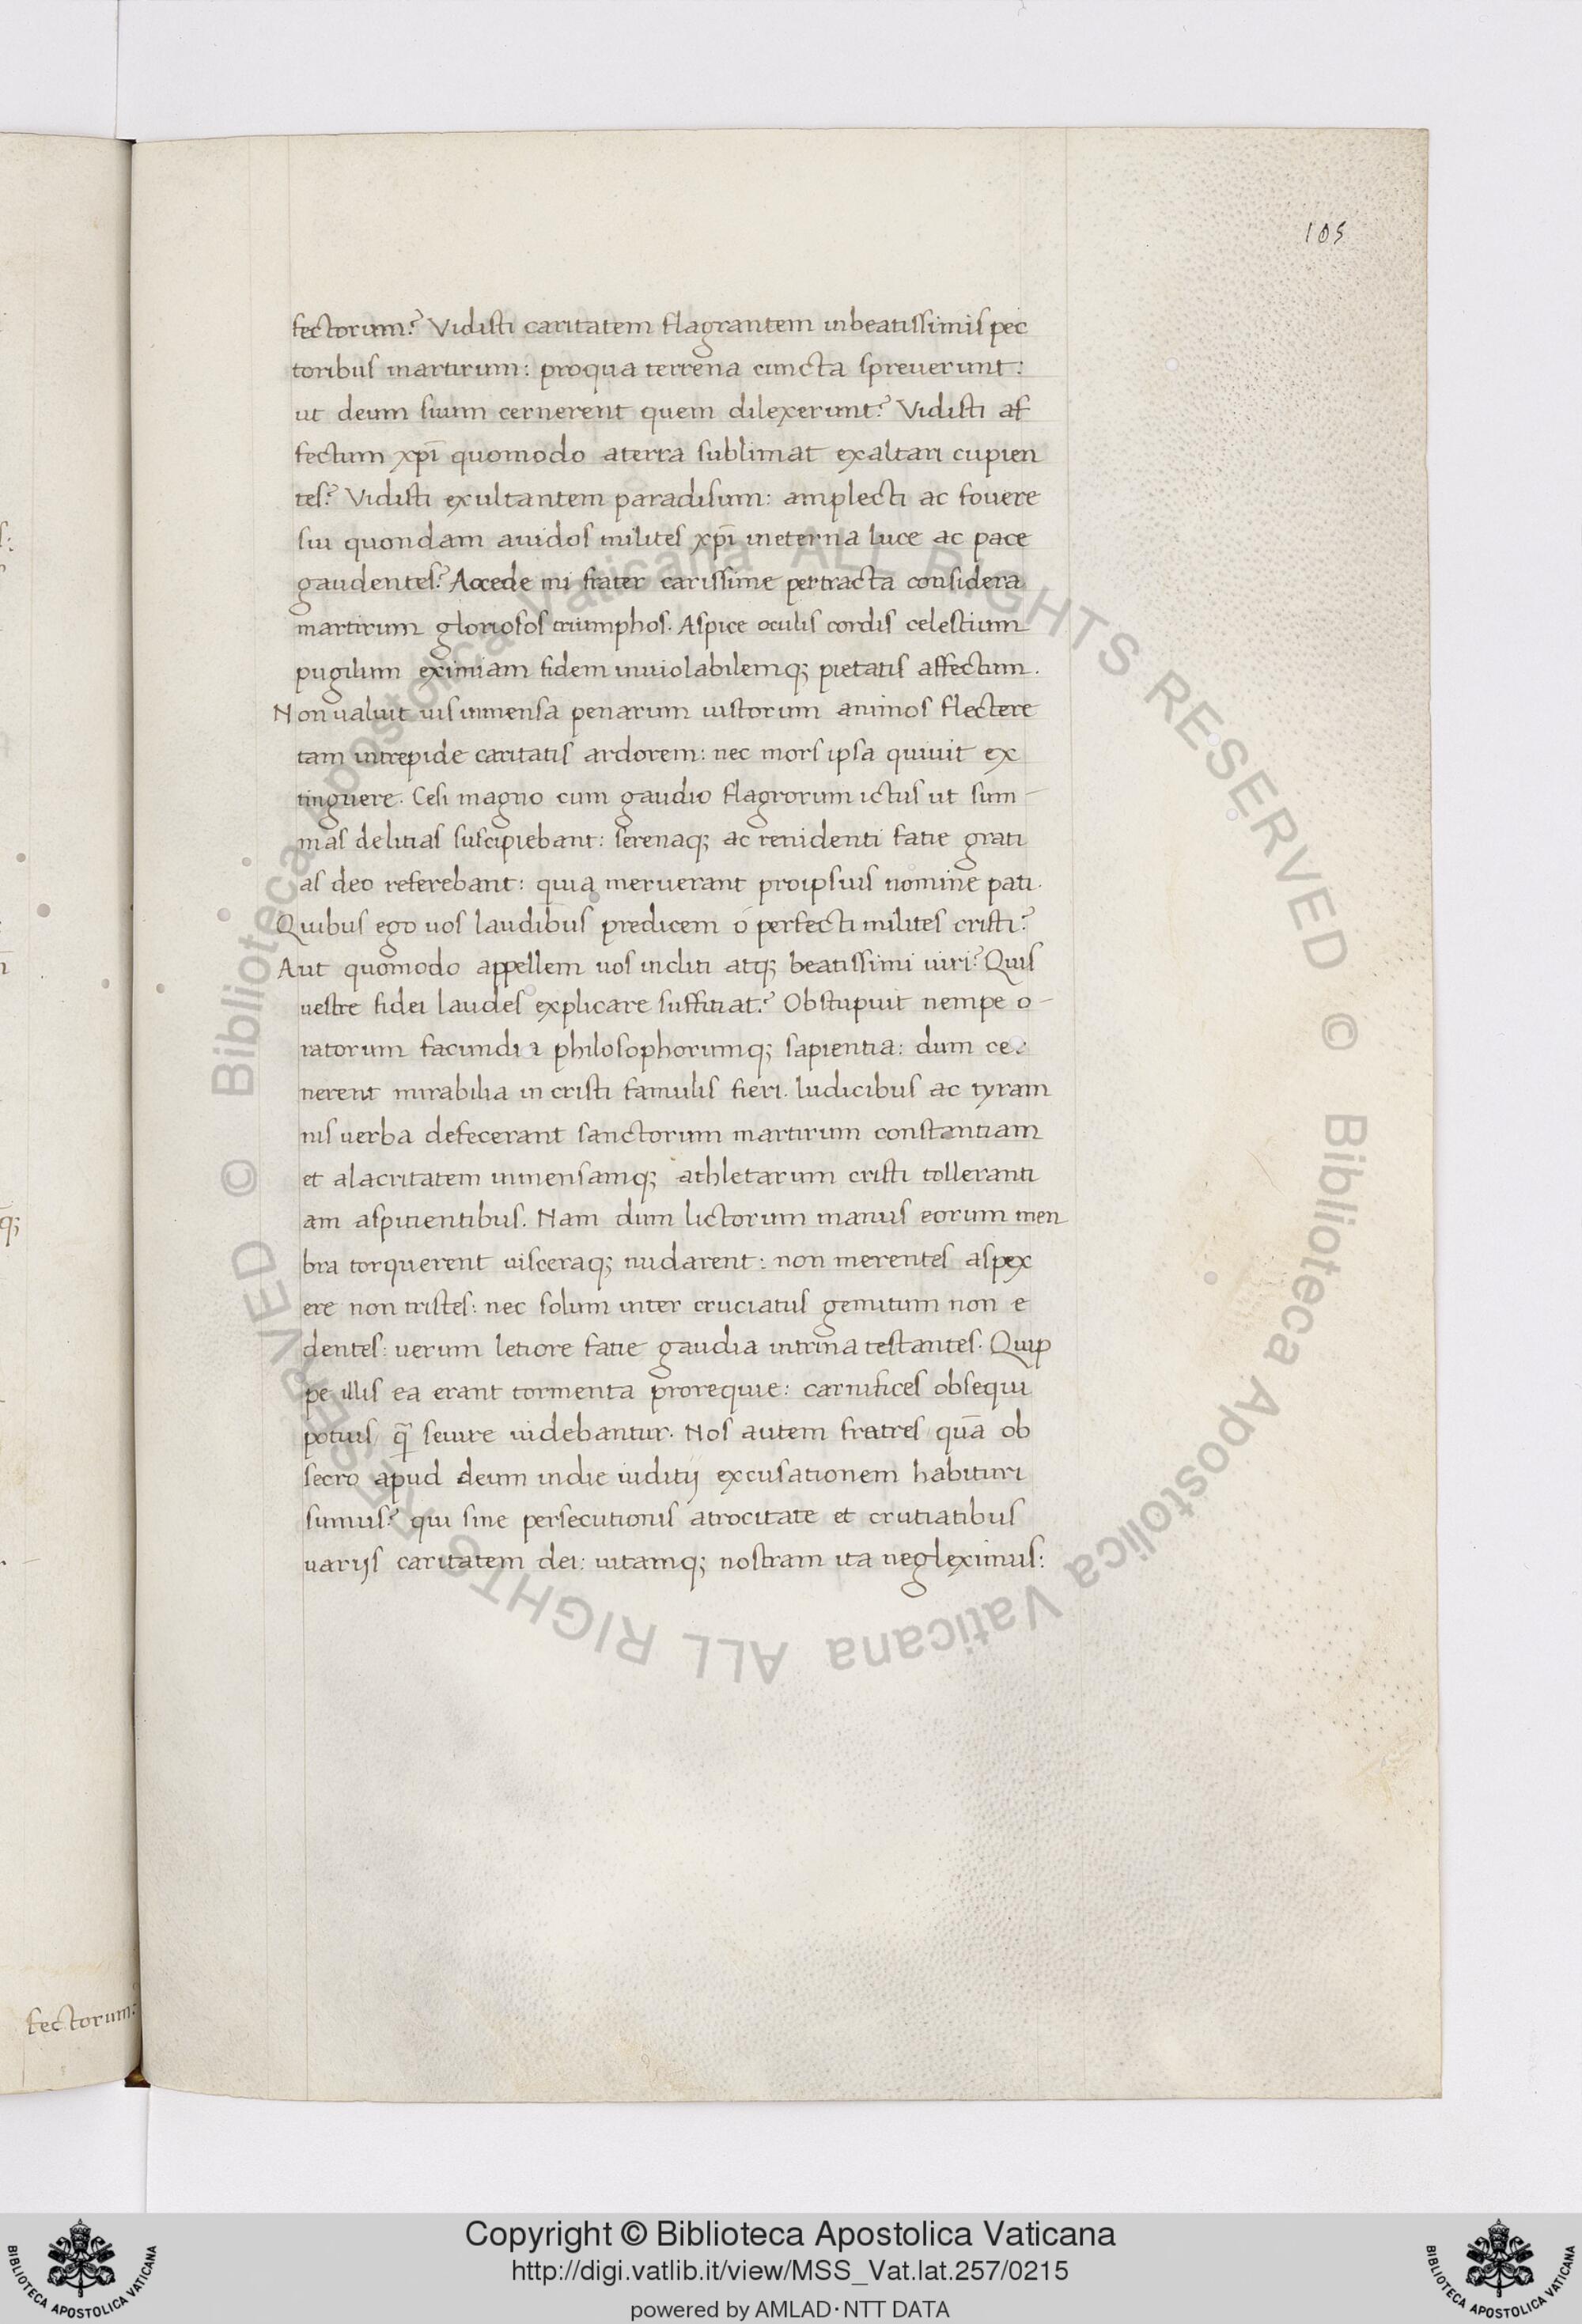 105
fectorum? Vidisti caritatem flagrantem inbeatissimis pec
toribus martirum: proqua terrena cuncta spreuerunt:
ut deum suum cernerent quem dilexerunt? Vidisti af
fectum xp̄i quomodo aterra sublimat exaltari cupien
tes? Vidisti exultantem paradisum: amplecti ac fouere
sui quondam auidos milites xp̄i ineterna luce ac pace
gaudentes? Accede mi frater carissime pertracta considera
martirum gloriosos triumphos. Aspice oculis cordis celestium
pugilum eximiam fidem inuiolabilemq; pietatis affectum.
Non ualuit uis inmensa penarum iustorum animos flectere
tam intrepide caritatis ardorem: nec mors ipsa quiuit ex
tinguere. Cesi magno cum gaudio flagrorum ictus ut sum-
mas delitias suscipiebant: serenaq; ac renidenti fatie grati
as deo referebant: quia meruerant proipsius nomine pati.
Quibus ego uos laudibus predicem ó perfecti milites cristi?
Aut quomodo appellem uos incliti atq; beatissimi uiri? Quis
uestre fidei laudes explicare suffitiat? Obstupuit nempe o-
ratorum facundia philosophorumq; sapientia: dum cer
nerent mirabilia in cristi famulis fieri. Iudicibus ac tyram
nis uerba defecerant sanctorum martirum constantiam
et alacritatem inmensamq; athletarum cristi tolleranti
am aspitientibus. Nam dum lictorum manus eorum men
bra torquerent uisceraq; nudarent: non merentes aspex
ere non tristes: nec solum inter cruciatus gemitum non e
dentes: uerum letiore fatie gaudia intrina testantes. Quip
pe illis ea erant tormenta prorequie: carnifices obsequi
potius q̄ seuire uidebantur. Nos autem fratres quā ob
secro apud deum indie iuditij excusationem habituri
sumus? qui sine persecutionis atrocitate et crutiatibus
uarijs caritatem dei: uitamq; nostram ita negleximus:
fectorum:
© Biblioteca Apostolica Vaticana ALL RIGHTS RESERVED © Biblioteca Apostolica Vaticana ALL RIGHTS RESERVED
Copyright © Biblioteca Apostolica Vaticana
http://digi.vatlib.it/view/MSS_Vat.lat.257/0215
powered by AMLAD·NTT DATA
BIBLIOTECA APOSTOLICA VATICANA
BIBLIOTECA APOSTOLICA VATICANA